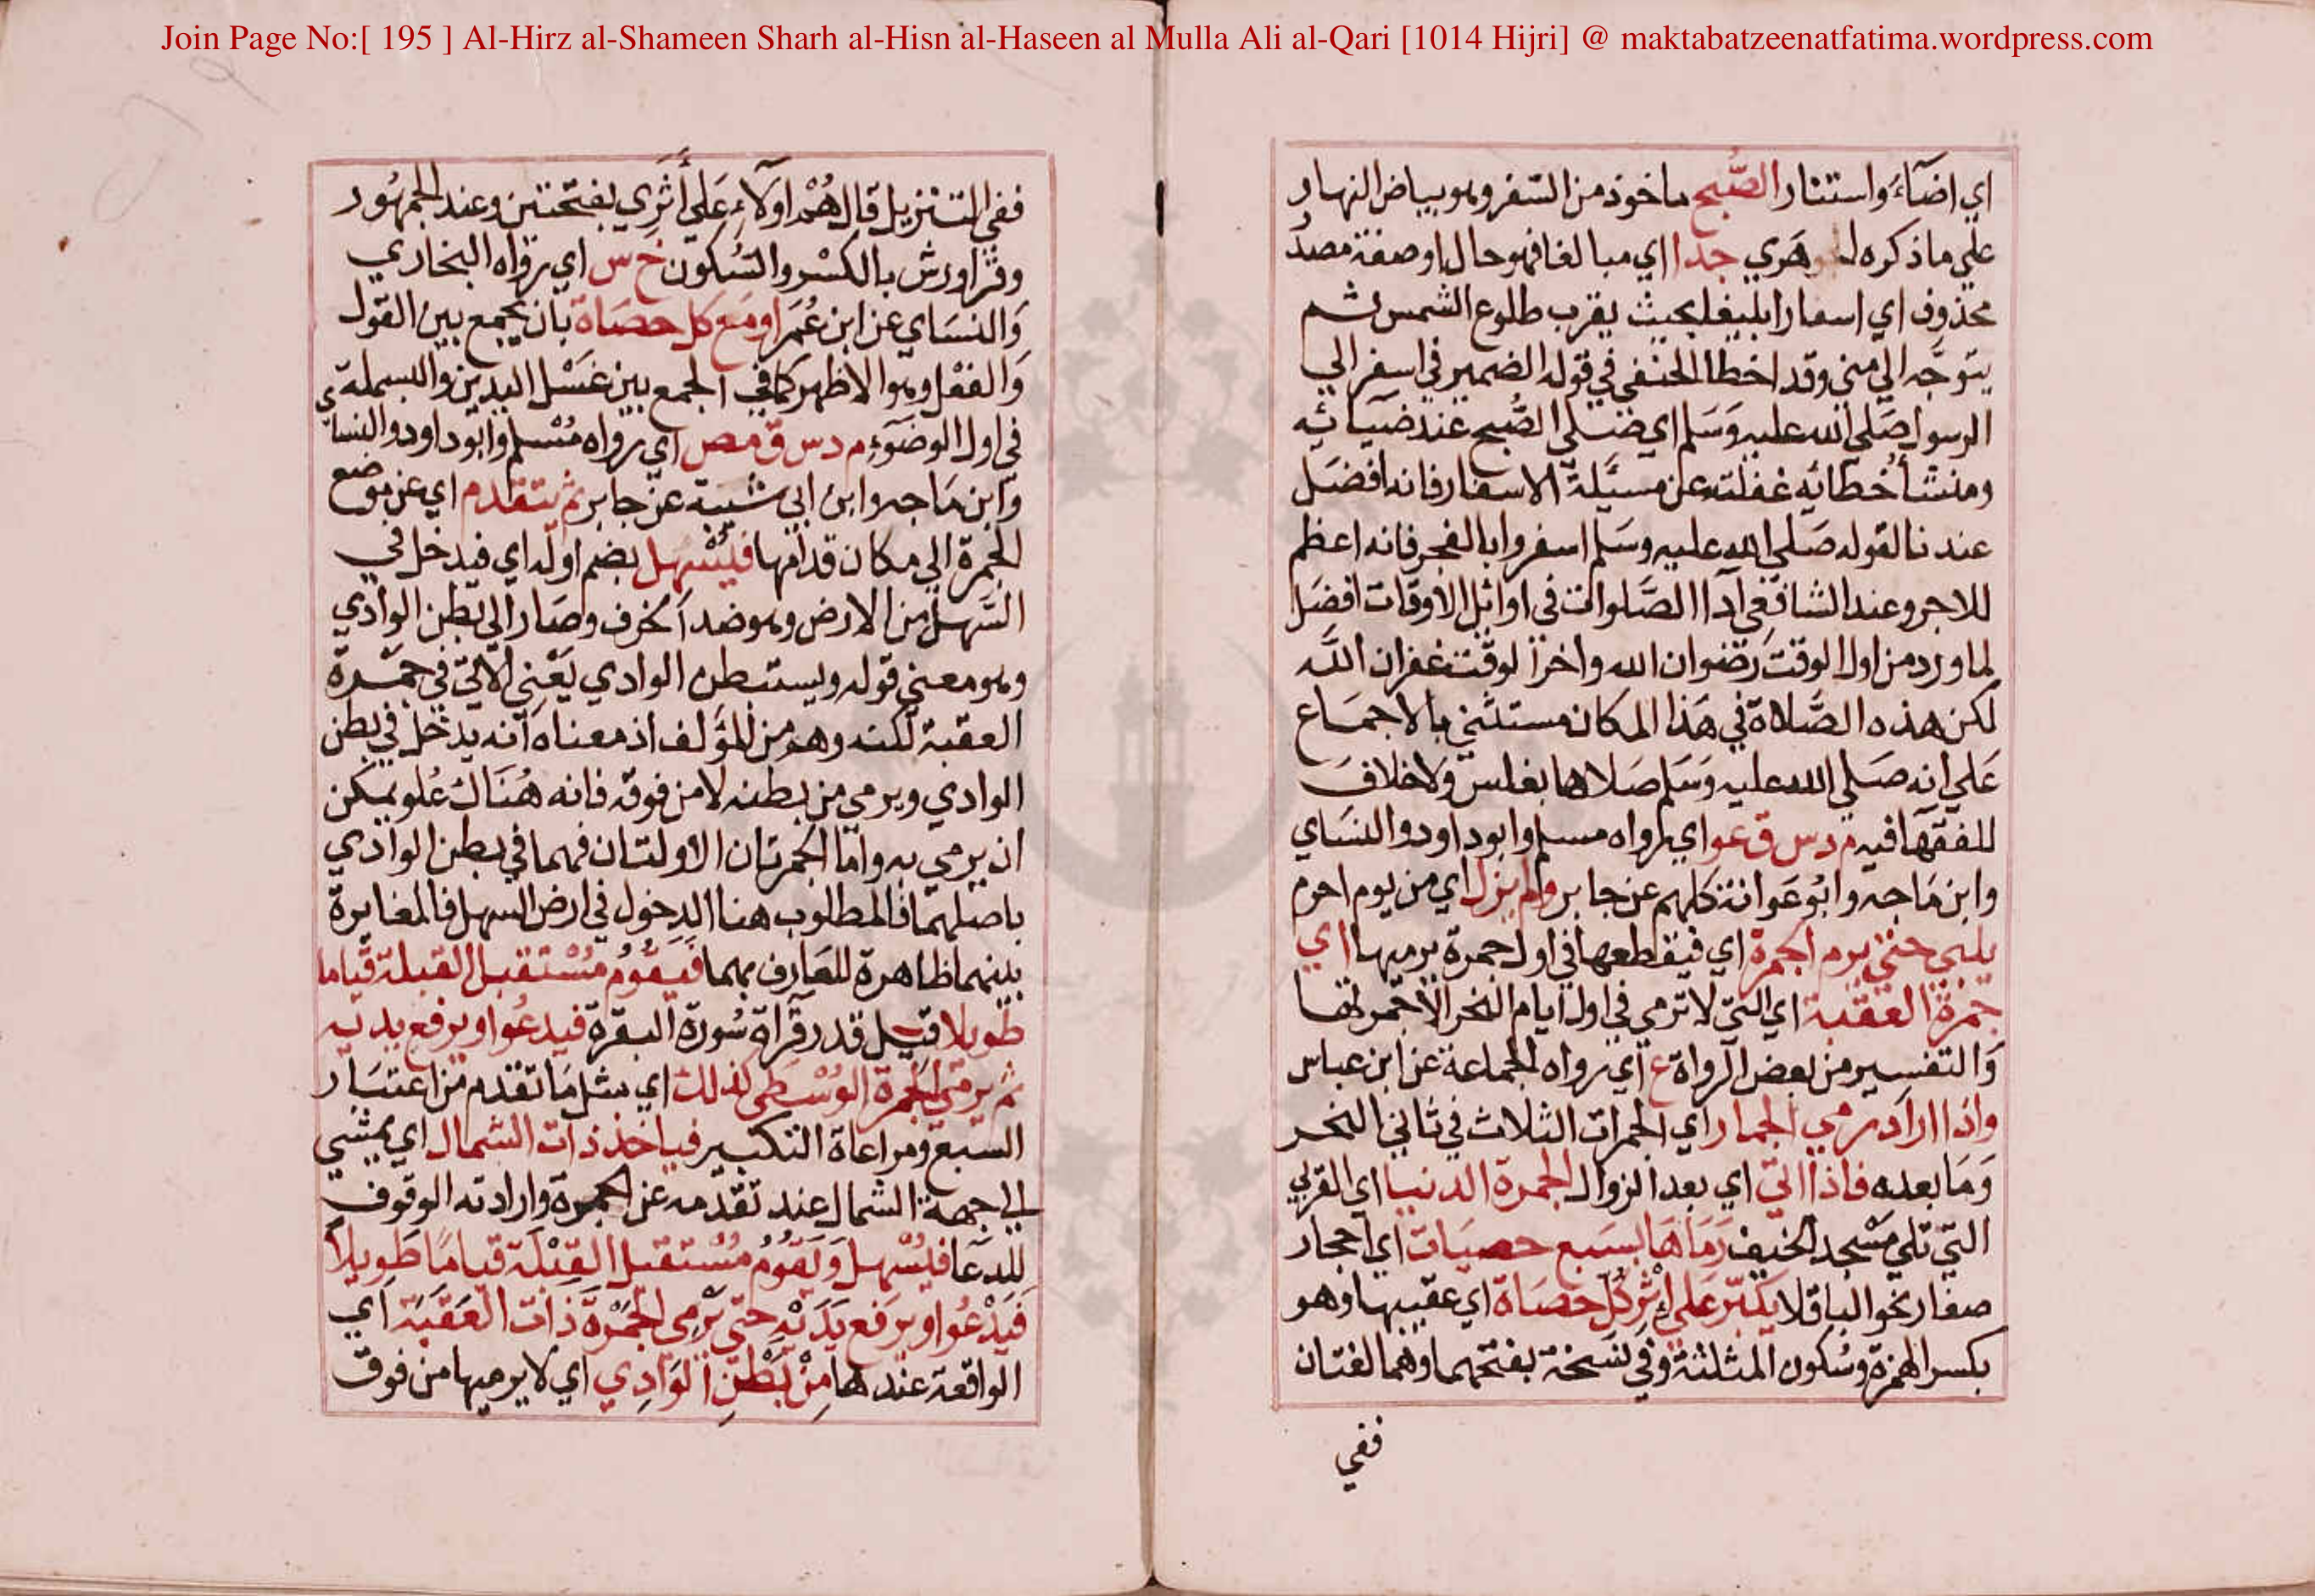 Join Page No:[ 195 ] Al-Hirz al-Shameen Sharh al-Hisn al-Haseen al Mulla Ali al-Qari [1014 Hijri] @ maktabatzeenatfatima.wordpress.com
اي اضآءَ واستنار الصُّبح ماخوذ من السّفر وهو بياض النهار
علي ما ذكره الجوهَري جدا اي مبالغا فهو حال او صفة مصدر
محذوف اي اسفارا بليغا بحيث يقرب طلوع الشمس ثم
يتوَجَّه الي مني وقد اخطا الحنفي في قوله الضمير في اسفر الي
الرسول صَلي الله عليه وَسَلم اي صَلي الصُّبح عند ضيآئه
ومنشأ خُطائه غفلته عن مسئلة الاسفار فانه افضَل
عندنا لقوله صَلي الله عليه وسَلم اسفروا بالفجر فانه اعظم
للاجر وعند الشافعي اَدا الصَّلوات في اوائل الاوقات افضَل
لما ورد من اول الوقت رضوان الله واخر الوقت غفران الله
لكن هذه الصَّلاة في هَذا المكان مستثني بالاجمَاع
عَلي انه صَلي الله عليه وَسَلم صَلاها بغلس ولاخلافَ
للفقهَا فيه م د س ق عو اي رواه مسلم وابو داود والنسَاي
وابن مَاجه وابُوعَوانة كلهم عن جابر ولم يزل اي من يوم احرم
يلبي حتي يرمِ الجمرة اي فيقطعها في اول جمرة يرميها اي
جمرةَ العقبة اي التي لا ترمي في اول ايام النحر الا جمرتها
وَالتفسير من بعض الرواة ع اي رواه الجماعة عن ابن عباس
واذا اراد رمي الجمار اي الجمرات الثلاث في ثاني النحر
وَمَا بعده فاذا اتي اي بعد الزوال الجمرة الدنيا اي القربي
التي تلي مَسْجد الخيف رَمَاهَا بسَبع حصيَات اي احجار
صغار نحو الباقلا يكبّر عَلي اِثْرِ كُل حصَاة اي عقيبها وهو
بكسر الهمزة وسُكون المثلثة وفي نسَخة بفتحهما وهما لغتان
ففي
ففي التنزيل قال هُمْ اولآءِ عَلي أَثَرِي بفتحتين وعند الجمهُور
وقرا ورش بالكسْر والسُكون خ س اي رواه البخاري
وَالنسَاي عن ابن عُمَر او مَع كل حصَاة بان يجمع بين القول
وَالفعْل وهو الاظهر كما في الجمع بين غسْل اليدين والبسملة
في اول الوضوء م د س ق مص اي رواه مُسْلم وابو داود والنساي
وابن مَاجه وابن ابي شيبة عن جابر ثم يتقدم اي عن موضع
الجمرة الي مكان قدامها فيُسْهل بضم اوله اي فيدخل في
السَّهل من الارض وهو ضد الحزف وصَار الي بطن الوادي
وهو معني قوله ويستبطن الوادي يَعْني الاتي في جَمْرة
العقبة لكنه وهم من المؤلف اذ معناه انه يدخل في بطن
الوادي ويرمي من بطنه لا من فوقه فانه هُنَاك عُلو يمكن
ان يرمي به واما الجمرتان الاولتان فهما في بطن الوادي
باصلهما فالمطلوب هنا الدخول في ارض السهل فالمغايرة
بينهما ظاهرة للعَارف بهما فيَقُومُ مُسْتقبل القبلة قيامَا
طويلا قيل قدر قرآة سُورة البقرة فيدعُوا ويرفع يديه
ثم يرمي الجمرة الوُسْطي كذلك اي مثل مَا تقدم من اعتبَار
السّبع ومراعاة التكبير فياخذ ذات الشمال اي يمشي
الي جهة الشمال عند تقدمه عن الجمرة وارادته الوقوف
للدعَا فيُسْهل وَيَقُومُ مُسْتقبل القِبْلَة قيامًا طَويلاً
فَيَدْعُوا ويَرفع يَدَيْهِ حتي يَرْمِي الجَمْرَةَ ذَات العَقَبَة اي
الواقعة عندها مِنْ بَطْنِ الوَادِي اي لا يرميها من فوق